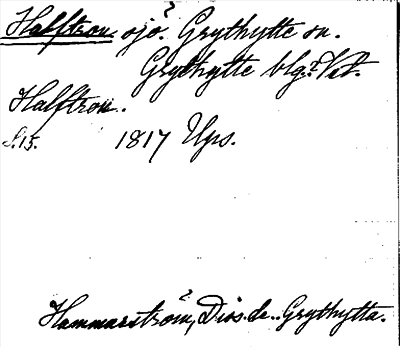 Halftron. sjö? Grythytte sn.
Grythytte blg.? Vst.
Halftron.
S.15. 1817 Ups.
Hammarström, Diss. de.. Grythytta.